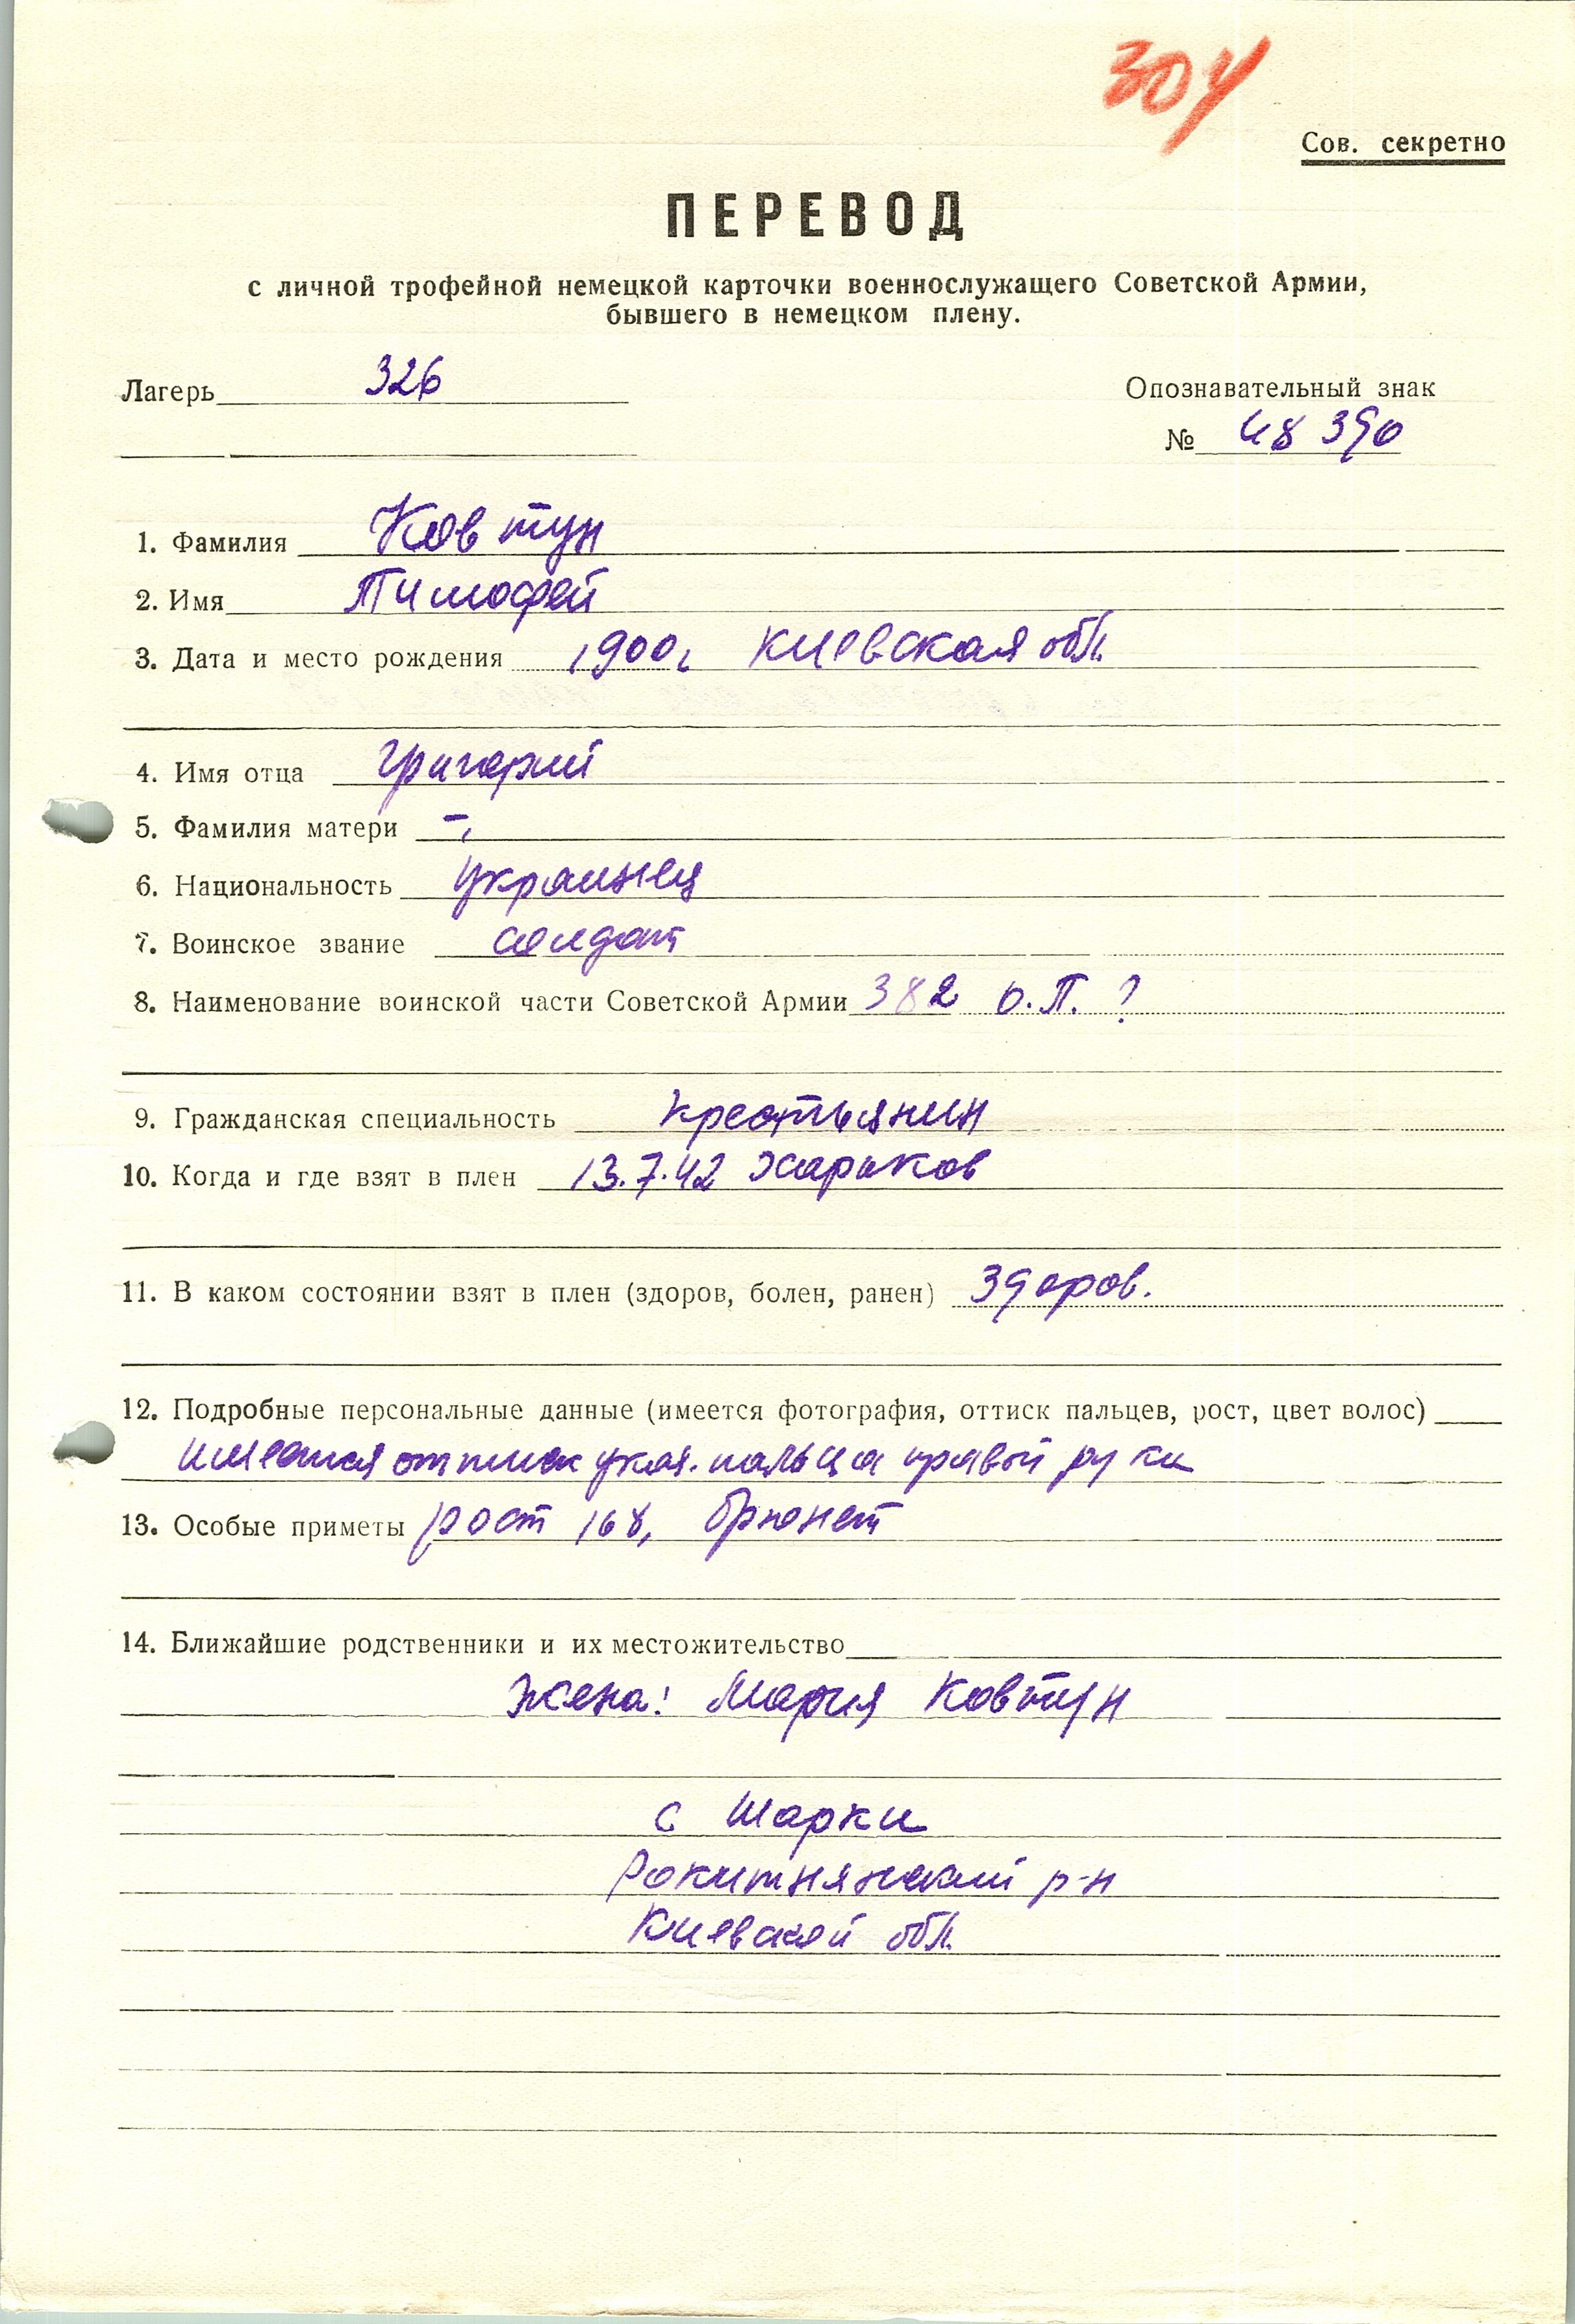 304
Сов. секретно
ПЕРЕВОД
с личной трофейной немецкой карточки военнослужащего Советской Армии,
бывшего в немецком плену.
Лагерь 326
Опознавательный знак
№ 48390
1. Фамилия Ковтун
2. Имя Тимофей
3. Дата и место рождения 1900г Киевская обл.
4. Имя отца Григорий
5. Фамилия матери –
6. Национальность украинец
7. Воинское звание солдат
8. Наименование воинской части Советской Армии 382 о.П. ?
9. Гражданская специальность крестьянин
10. Когда и где взят в плен 13.7.42 Харьков
11. В каком состоянии взят в плен (здоров, болен, ранен) Здоров.
12. Подробные персональные данные (имеется фотография, оттиск пальцев, рост, цвет волос)
имеется оттиск указ. пальца правой руки
13. Особые приметы рост 168, брюнет
14. Ближайшие родственники и их местожительство
Жена: Мария Ковтун
с Шарки
Рокитнянский р-н
Киевской обл.